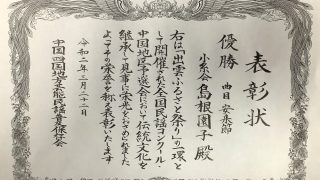 表彰状
優勝 曲目 安来節
小糸会 島根園子 殿
右は「出雲ふるさと祭り」の一環と
して開催された全国民謡コンクール
中国地区予選会において伝統文化を
継承して見事に栄光をおさめられました
よってその栄誉を称え表彰いたします
令和二年三月二十二日
中国四国地方芸能民謡保存会